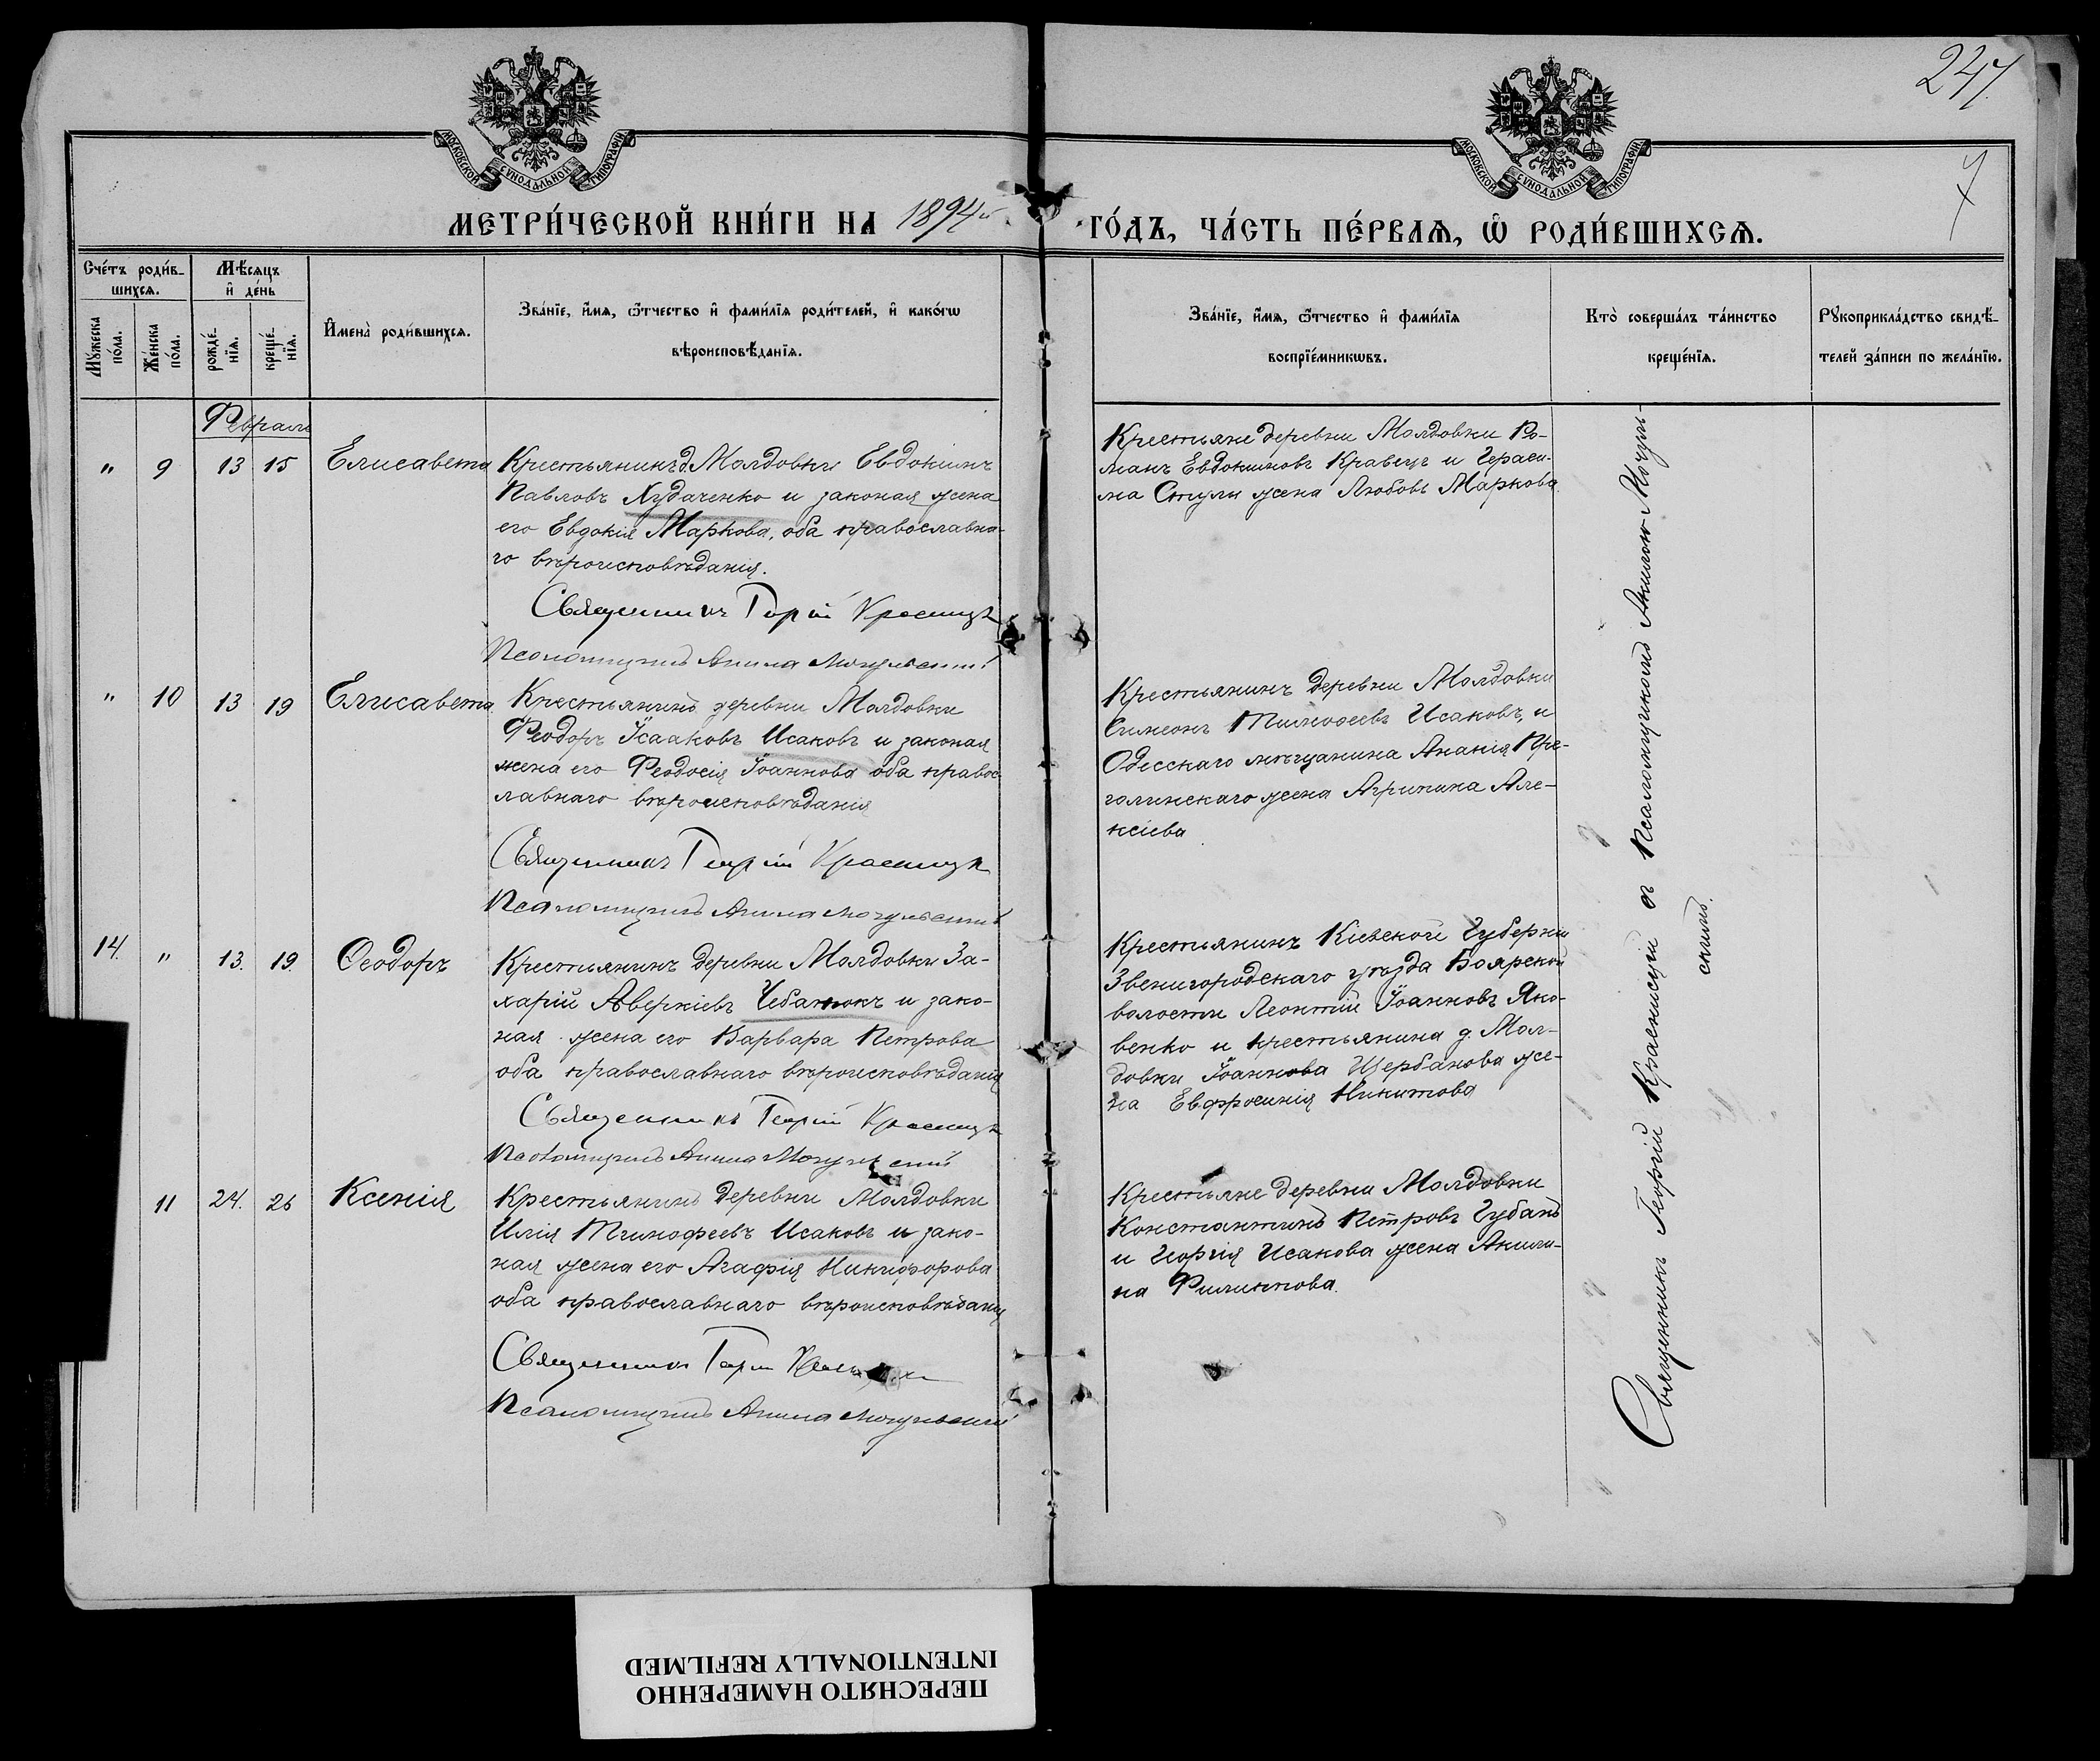 247.
7
МОСКОВСКОЙ СѴНОДАЛЬНОЙ ТИПОГРАФІИ
МОСКОВСКОЙ СѴНОДАЛЬНОЙ ТИПОГРАФІИ
МЕТРИ́ЧЕСКОЙ КНИ́ГИ НА 1894й
ГО́ДЪ, ЧА́СТЬ ПЕ́РВАѦ, Ѡ РОДИ́ВШИХСѦ.
Сче́тъ роди́в-
шихсѧ.
Мѣ́сѧцъ
и҆ де́нь
Мꙋ́жеска
по́ла.
Же́нска
по́ла.
рожде́-
нїѧ.
креще́-
нїѧ.
И҆мена̀ роди́вшихсѧ.
Зва́нїе, и҆́мѧ, ѻ҆́тчество и҆ фами́лїѧ роди́телей, и҆ како́гѡ
вѣроисповѣ́данїѧ.
Зва́нїе, и҆́мѧ, ѻ҆́тчество и҆ фами́лїѧ
воспрїе́мникѡвъ.
Кто̀ соверша́лъ та́инство
креще́нїѧ.
Рꙋкоприкла́дство свидѣ́-
телей за́писи по жела́нїю.
Февраль
" 9 13 15 Елисавета
Крестьянинъ д. Молдовки Евдокимъ
Павловъ Худаченко и законая жена
его Евдокія Маркова, оба православна-
го вѣроисповѣданія.
Священникъ Георгій Красницк
Псаломщикъ Акила Могульскій
Крестьяне деревни Молдовки Ро-
манъ Евдокимовъ Кравецъ и Гераси-
ма Стули жена Любовь Маркова.
" 10 13 19 Елисавета
Крестьянинъ деревни Молдовки
Феодоръ Ісааковъ Исаковъ и законая
жена его Феодосія Іоаннова оба правос
лавнаго вѣроисповѣданія
Священникъ Георгій Красницк
Псаломщикъ Акила Могульскій
Крестьянинъ деревни Молдовки
Симеонъ Тимофеевъ Исаковъ, и
Одесскаго мѣщанина Ананія При-
голинскаго жена Агрипина Але-
ксіева
14. " 13. 19. Ѳеодоръ
Крестьянинъ деревни Молдовки За-
харій Аверкіевъ Чебанюкъ и зако-
ная жена его Варвара Петрова
оба православнаго вѣроисповѣданія
Священникъ Георгій Красницк
Псаломщикъ Акила Могульскій
Крестьянинъ Кіевской Губерніи
Звенигородскаго уѣзда Боярской
волости Леонтій Іоанновъ Яко-
венко и крестьянина д. Мол-
довки Іоаннова Щербанова же-
на Евфросинія Никитова
11 24. 26 Ксенія
Крестьянинъ деревни Молдовки
Илія Тимофеевъ Исаковъ и зако-
ная жена его Агафія Никифорова
оба православнаго вѣроисповѣданія
Священникъ Георгій
Псаломщикъ Акила Могульскій
Крестьяне деревни Молдовки
Константинъ Петровъ Губанъ
и Георгія Исакова жена Акили-
на Филиппова.
Священникъ Георгій Красницкій съ Псаломщикомъ Акилою Могуль-
скимъ.
ПЕРЕСНЯТО НАМЕРЕННО
INTENTIONALLY REFILMED